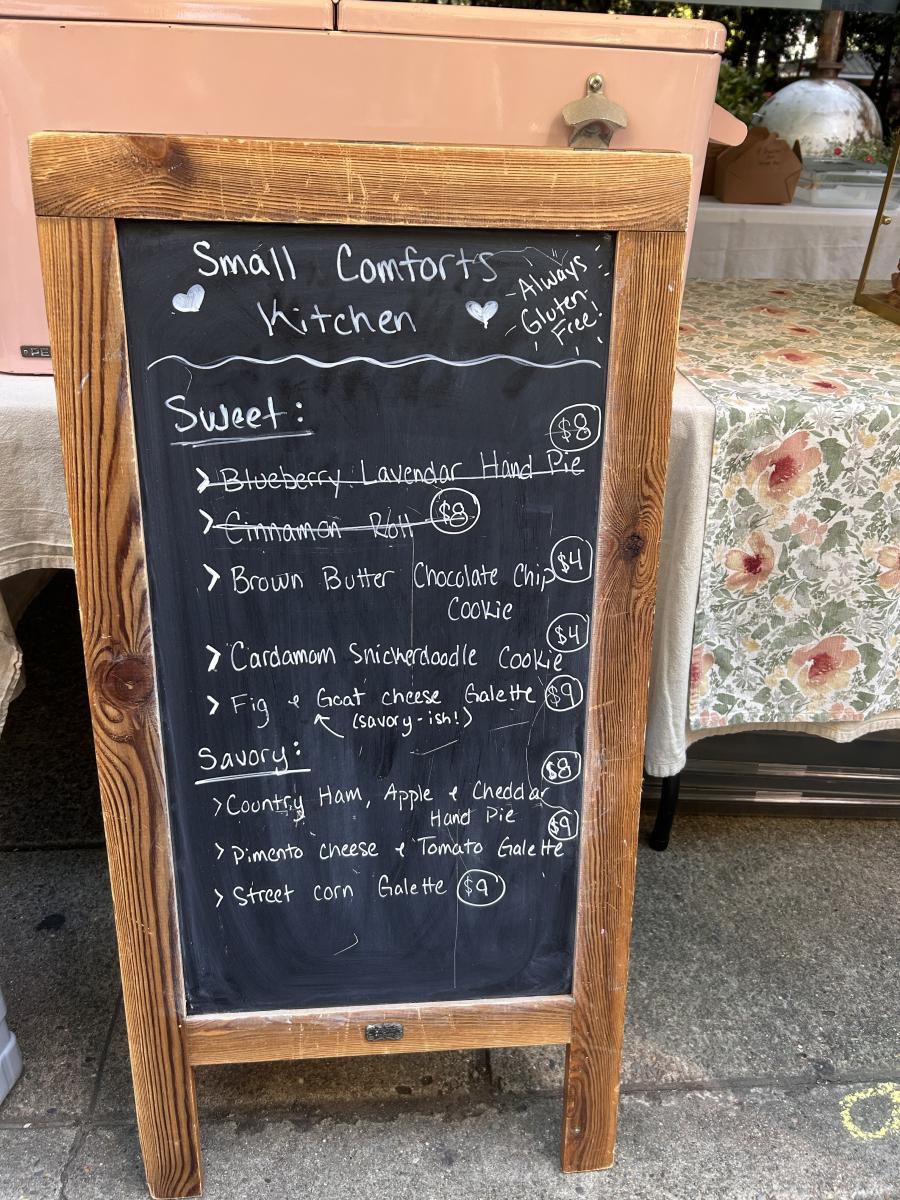 Small Comforts
Kitchen
Always
Gluten-
Free!
Sweet:
> Blueberry Lavendar Hand Pie $8
> Cinnamon Roll $8
> Brown Butter Chocolate Chip $4
Cookie
> Cardamom Snickerdoodle Cookie $4
> Fig & Goat cheese Galette $9
(savory-ish!)
Savory:
> Country Ham, Apple & Cheddar $8
Hand Pie
> Pimento cheese & Tomato Galette $9
> Street corn Galette $9